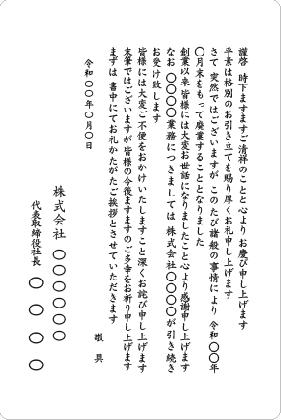 謹啓 時下ますますご清祥のことと心より お慶び申し上げます
平素は格別のお引き立てを賜り厚くお礼申し上げます
さて 突然ではございますが このたび諸般の事情により 令和〇〇年
〇月末をもって廃業することとなりました
創業以来 皆様には大変お世話になりましたこと心より感謝申し上げます
なお 〇〇〇〇業務につきましては 株式会社〇〇〇〇が引き続き
お受け致します
皆様には大変ご不便をおかけいたしますこと深くお詫び申し上げます
末筆ではございますが 皆様の今後ますますのご多幸をお祈り申し上げます
まずは 書中にてお礼かたがたご挨拶とさせていただきます
敬具
令和〇〇年〇月〇日
株式会社 〇〇〇〇〇
代表取締役社長 〇〇〇〇